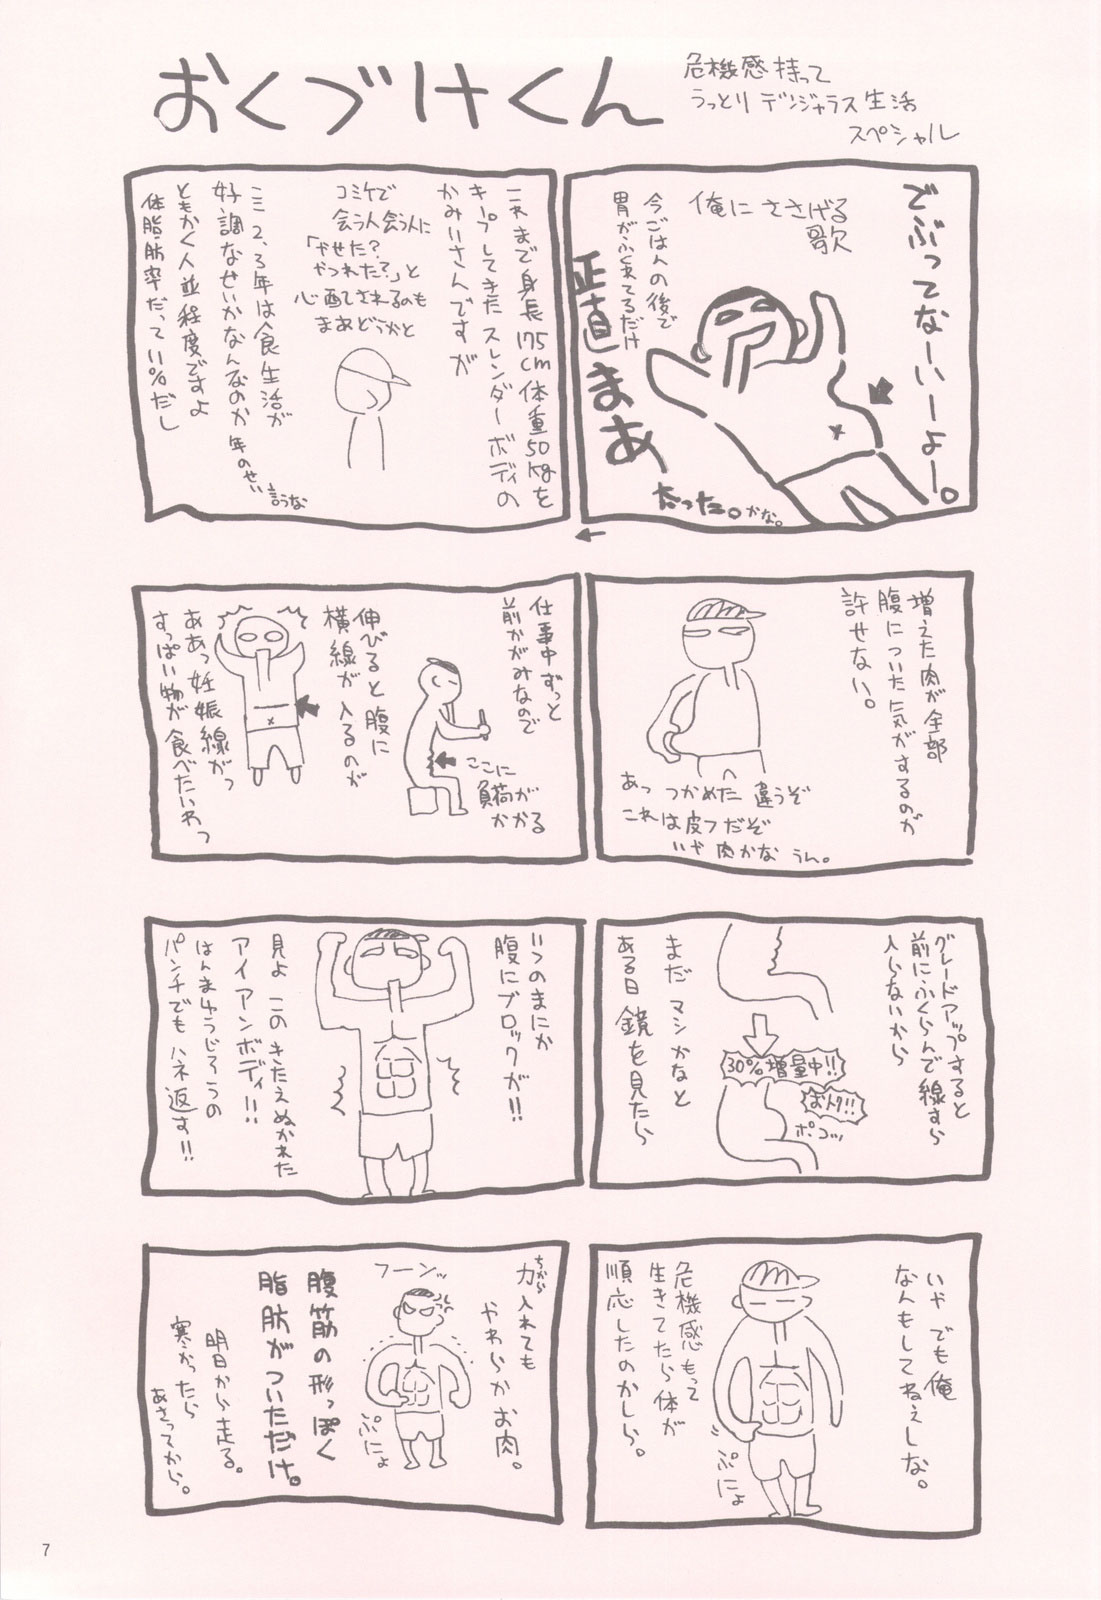 おくづけくん
危機感持って
うっとりデンジャラス生活
スペシャル
でぶってなーいーよー。
俺にささげる
歌
今ごはんの後で
胃がふくれてるだけ
正直まあ
太った。かな。
これまで身長175cm体重50kgを
キープしてきたスレンダーボディの
かみいさんですが
コミケで
会う人会う人に
「やせた?
やつれた?」と
心配されるのも
まあどうかと
ここ2、3年は食生活が
好調なせいかなんなのか年のせい
言うな
ともかく人並程度ですよ
体脂肪率だって11%だし
増えた肉が全部
腹についた気がするのが
許せない。
あっ つかめた 違うぞ
これは皮フだぞ
いや肉かな うん。
仕事中ずっと
前かがみなので
ここに
負荷が
かかる
伸びると腹に
横線が入るのが
ああっ妊娠線がっ
すっぱい物が食べたいわっ
グレードアップすると
前にふくらんで線すら
入らないから
30%増量中!!
おトク!!
ポコッ
まだマシかなと
ある日鏡を見たら
いつのまにか
腹にブロックが!!
見よ このきたえぬかれた
アイアンボディ!!
はんまゆうじろうの
パンチでもハネ返す!!
いや でも俺
なんもしてねえしな。
ぷにょ
危機感もって
生きてたら体が
順応したのかしら。
力入れても
ちから
やわらかお肉。
フーンッ
ぷにょ
腹筋の形っぽく
脂肪がついただけ。
明日から走る。
寒かったら
あさってから。
7